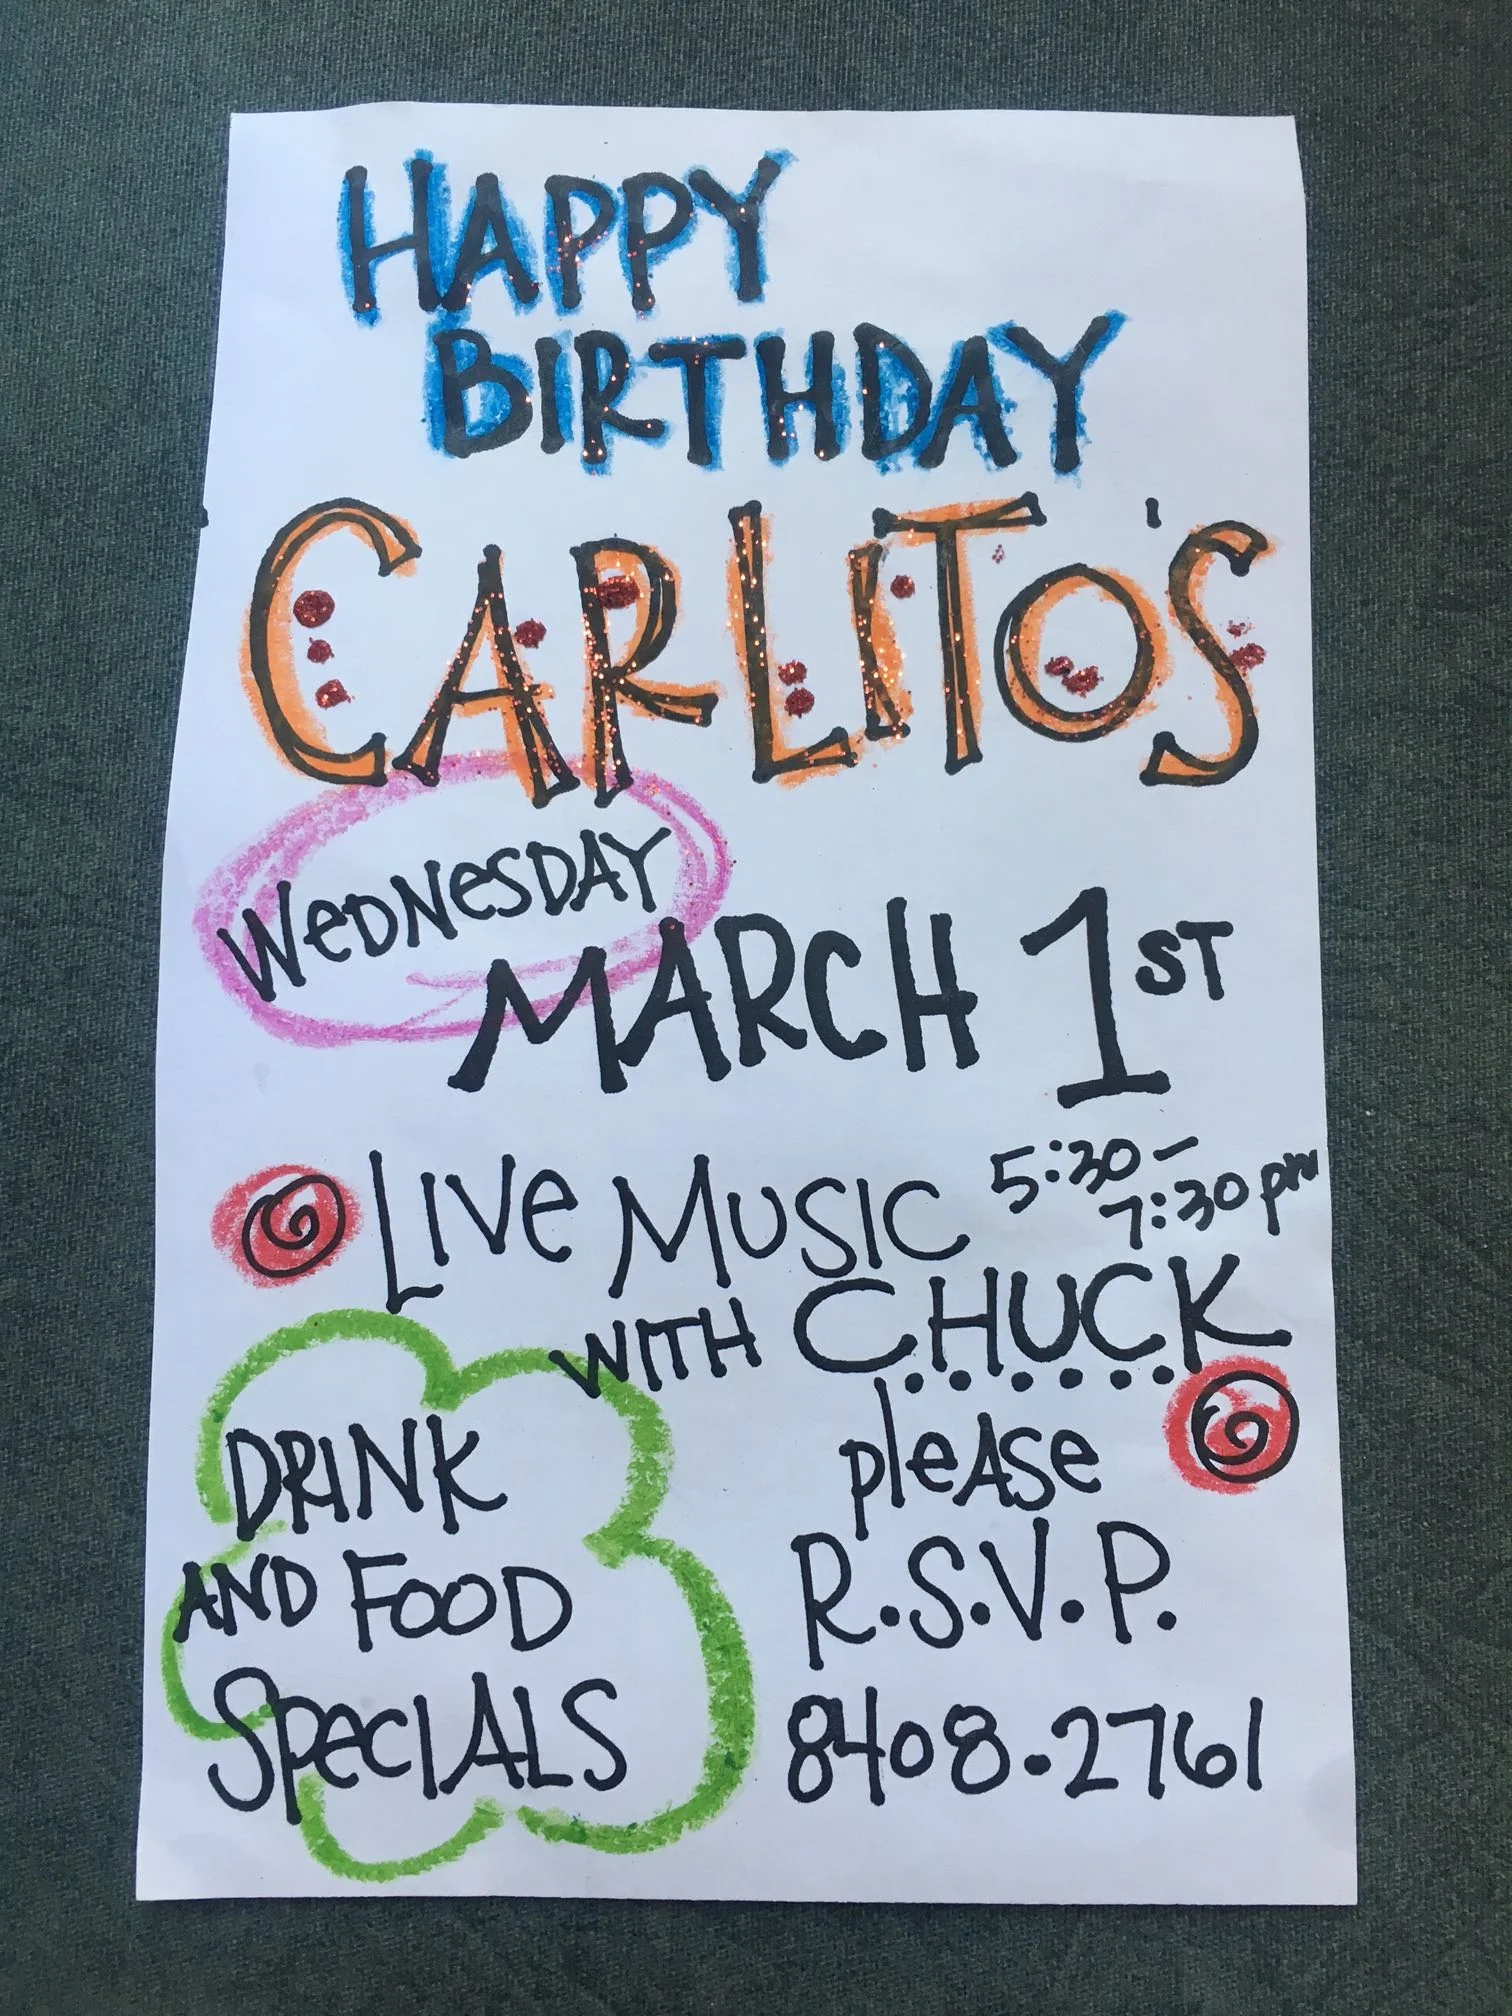 HAPPY
BIRTHDAY
CARLITO'S
WeDNesDAY
MARCH 1ST
LIVe MUSIC 5:30-
7:30pm
WITH CHUCK
pleASe
DRINK
AND FOOD
SpecIALS
R.S.V.P.
8408.2761